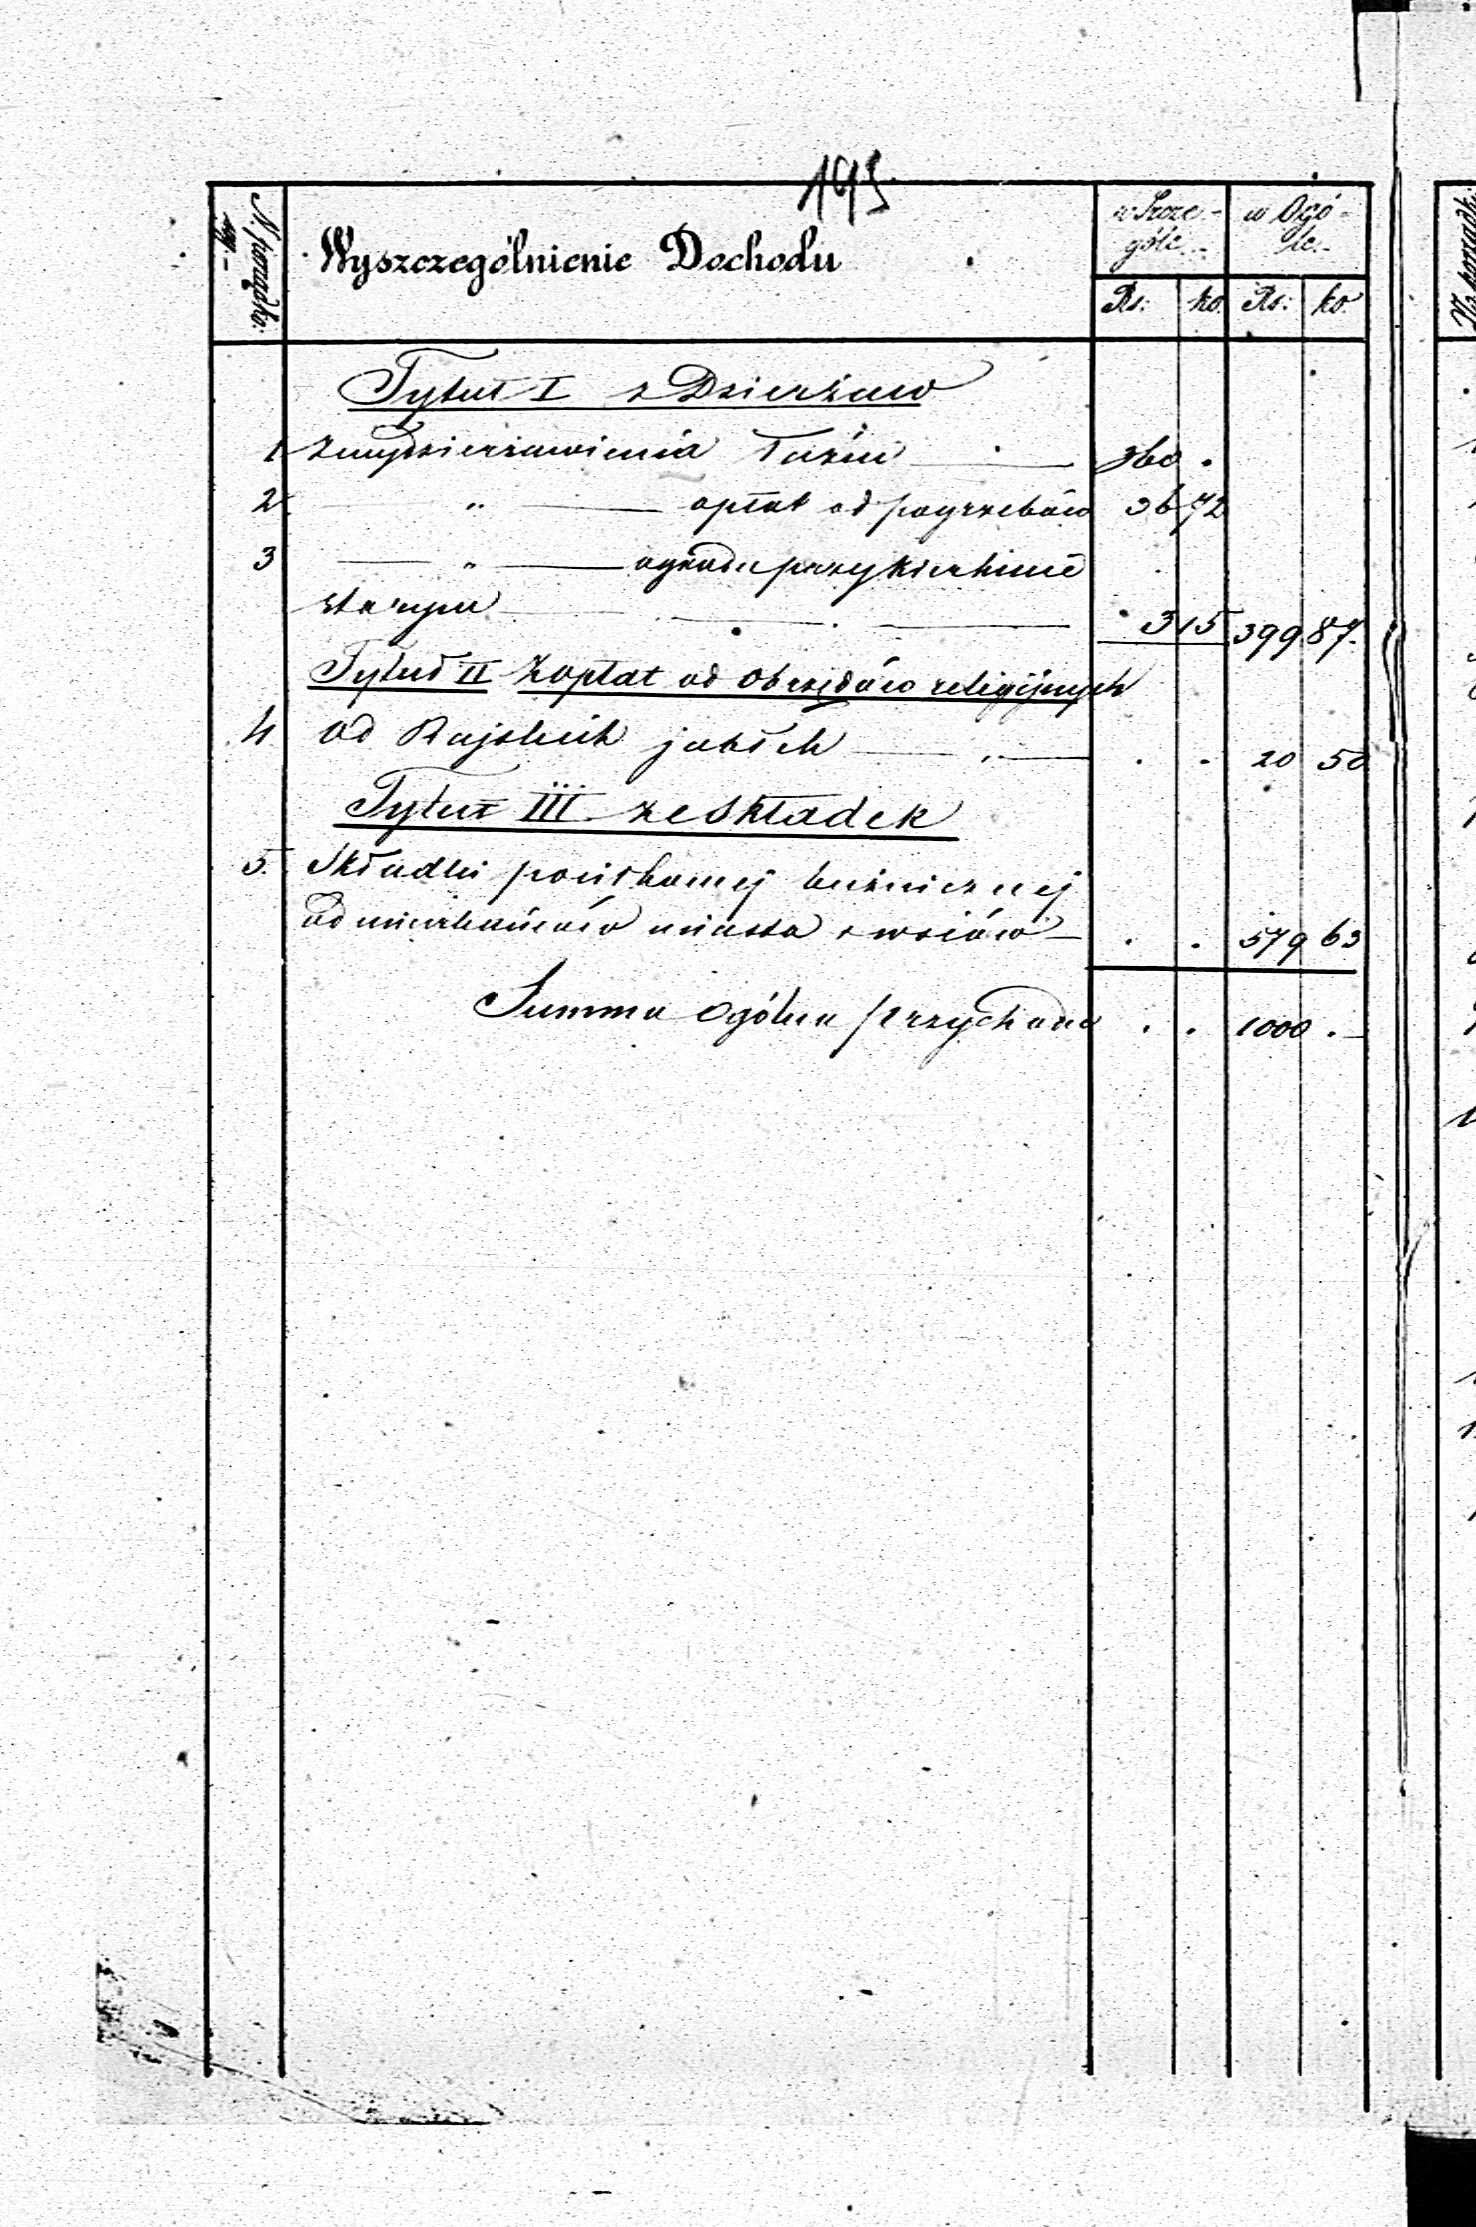 195
N. porządko-
wy
Wyszczególnienie Dochodu
w Szcze-
góle
w Ogó-
le
Rs: ko. Rs: ko.
Tytuł I z Dzierżaw
1 z wydzierżawienia Łaźni 360 .
2 " opłat od pogrzebów 36 72
3 " ogrodu przy kierkucie
starym . 3 15 399 87
Tytuł II z opłat od obrzędów religijnych
4 od Rajskich jabłek . . 20 50
Tytuł III ze Składek
5. Składki bużnicznej
od mieszkańców miasta i wsiów . . 579 63
Summa Ogólna Przychodu . . 1000 .